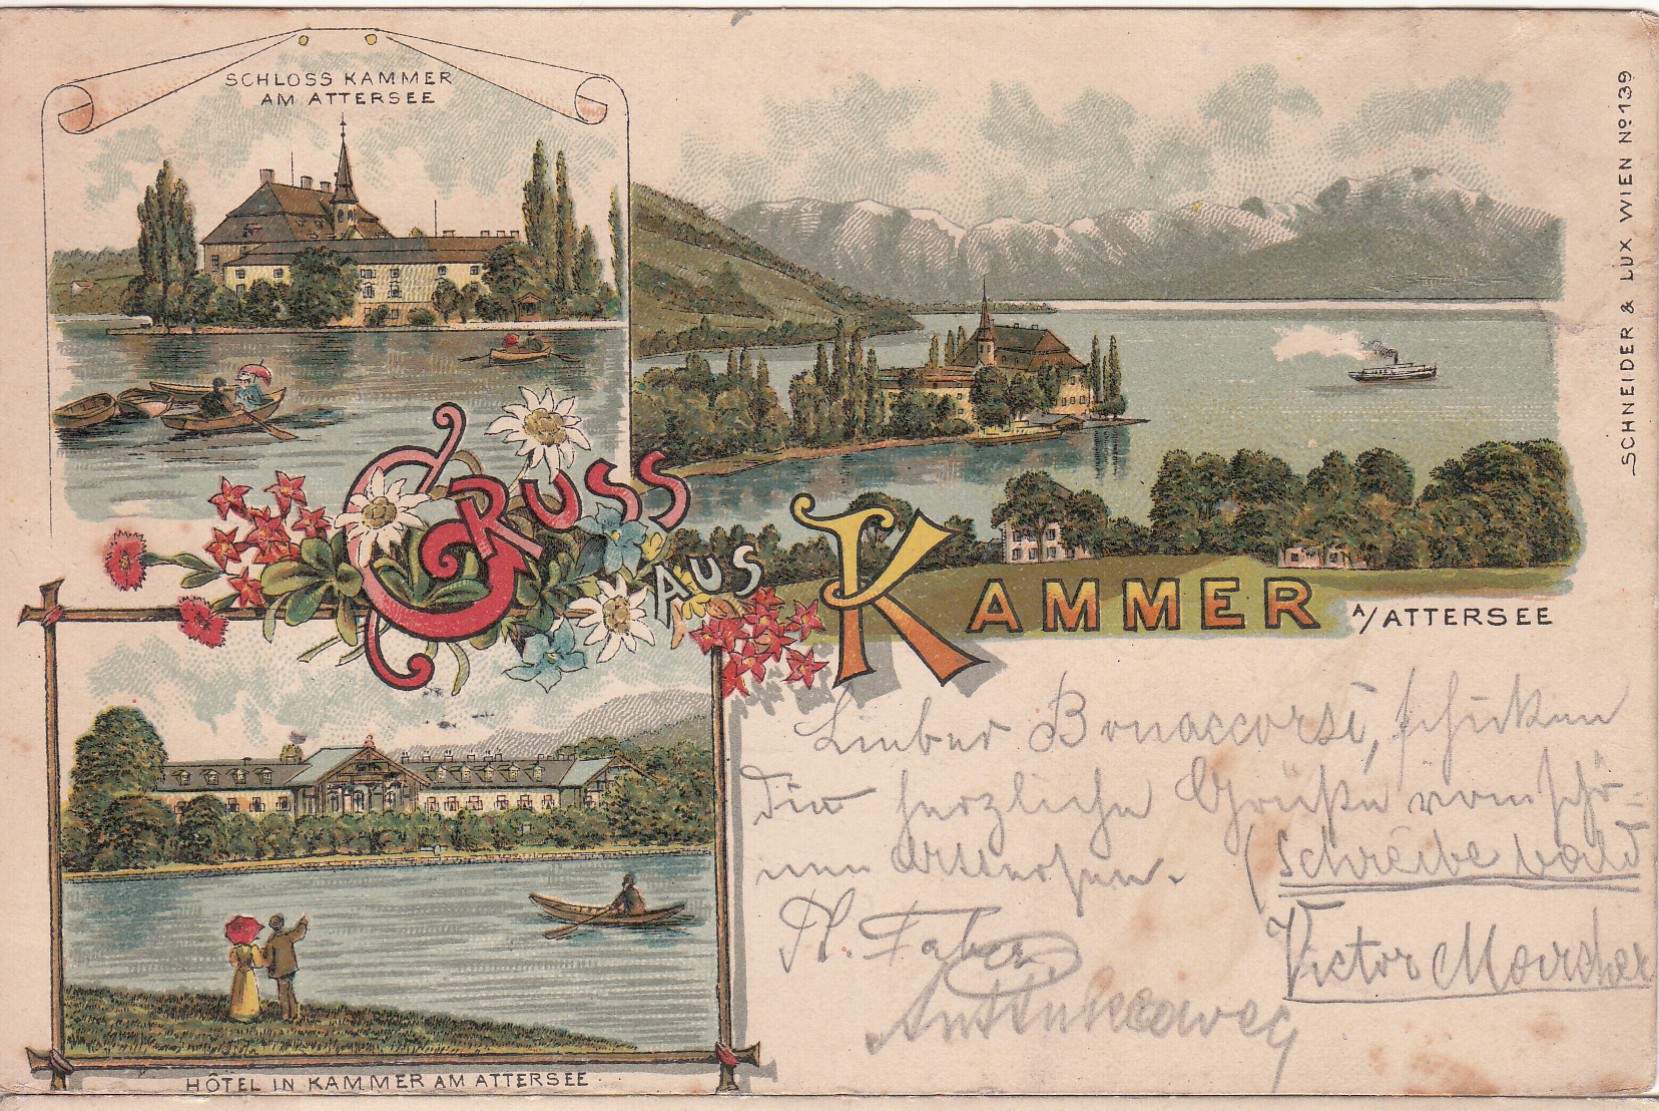 SCHLOSS KAMMER
AM ATTERSEE
GRUSS
AUS
KAMMER A/ATTERSEE
SCHNEIDER & LUX WIEN No 139
HÔTEL IN KAMMER AM ATTERSEE
Lieber Bonaccorsi, schicken
Dir herzliche Grüße vom schö-
nen Attersee.
(schreibe bald
Faber
Victor